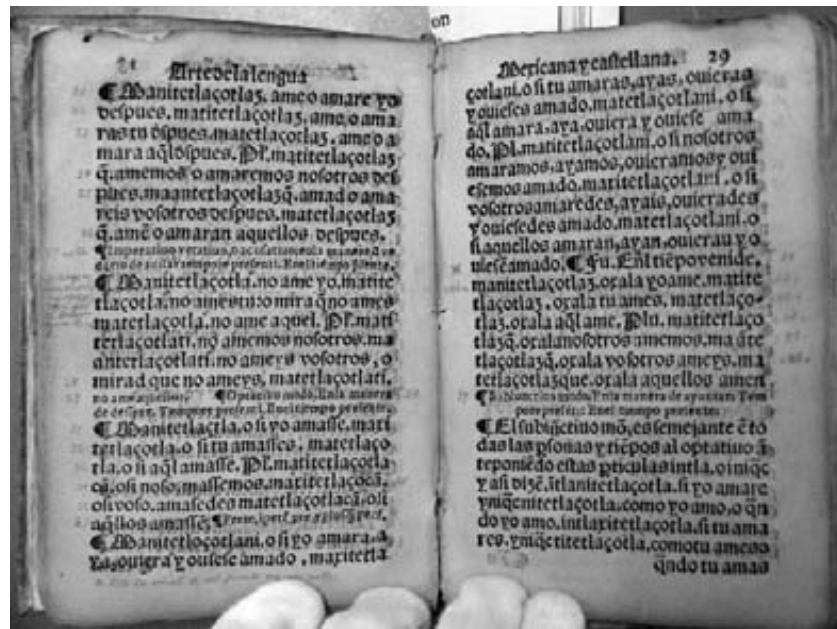 on
Arte de la lengua
¶Manitetlaçotlaz. ame o amare yo
despues. matitetlaçotlaz. ame, o ama
ras tu d̄spues. matetlaçotlaz. ame o a
mara aq̄l d̄spues. Pl. matitetlaçotlaz
q̄. amemos o amaremos nosotros des
pues. maantetlaçotlazq̄. amad o ama
reis vosotros despues. matetlaçotlaz
q̄. amē o amaran aquellos despues.
¶Imperatiuo vetatiuo,
¶Manitetlaçotla. no ame yo. matite
tlaçotla. no ames tu o mira q̄ no ames
matetlaçotla. no ame aquel. Pl. mati
tetlaçotlati. no amemos nosotros. ma
antetlaçotlati. no ameys vosotros, o
mirad que no ameys, matetlaçotlati.
no amen aquellos. ¶Optatiuo modo, En la manera
de dessear. Tempore presenti. En el tiempo presente.
¶Manitetlaçotla, o si yo amasse. mati
tetlaçotla. o si tu amasses. matetlaço
tla. o si aq̄l amasse. Pl. matitetlaçotla
cā. o si noso. massemos. matitetlaçocā.
osi voso. amasedes matetlaçotlacā, o si
aq̄llos amassē.
¶Manitetloçotlani. o si yo amara. a
ya, ouiera y ouiese amado. maxitetla
Mexicana y castellana. 29
çotlani. o si tu amaras, ayas, ouieras
y ouieses amado. matetlaçotlani. o si
aq̄l amara, aya, ouiera y ouiese ama
do. Pl. matitetlaçotlani. o si nosotros
amaramos, ayamos, ouieramos y oui
esemos amado. matitetlaçotlani. o si
vosotros amaredes, ayais, ouierades
y ouiesedes amado. matetlaçotlani. o
si aquellos amaran, ayan, ouierau y o
uiesē amado. ¶Fu. Enl tiēpo venide.
manitetlaçotlaz. oxala yo ame. matite
tlaçotlaz. oxala tu ames. matetlaço-
tlaz. oxala aq̄l ame. Plu. matitetlaço
tlazq̄. oxala nosotros amemos. ma āte
tlaçotlazq̄. oxala vosotros ameys. ma
tetlaçotlazque. oxala aquellos amen
¶Subiunctiuo modo, En la manera de ayuntar. Tem
pore presenti. En el tiempo presente.
¶El subiūctiuo mō, es semejante ē to
das las p̄sonas y tiēpos al optatiuo ā
teponiēdo estas p̄ticulas intla. o iniq̄c
y asi dizē. itlanitetlaçotla. si yo amare
yniq̄cnitetlaçotla, como yo amo, o q̄n
do yo amo. intlaxitetlaçotla. si tu ama
res. yniq̄ctitetlaçotla. como tu ames o
q̄ndo tu amas